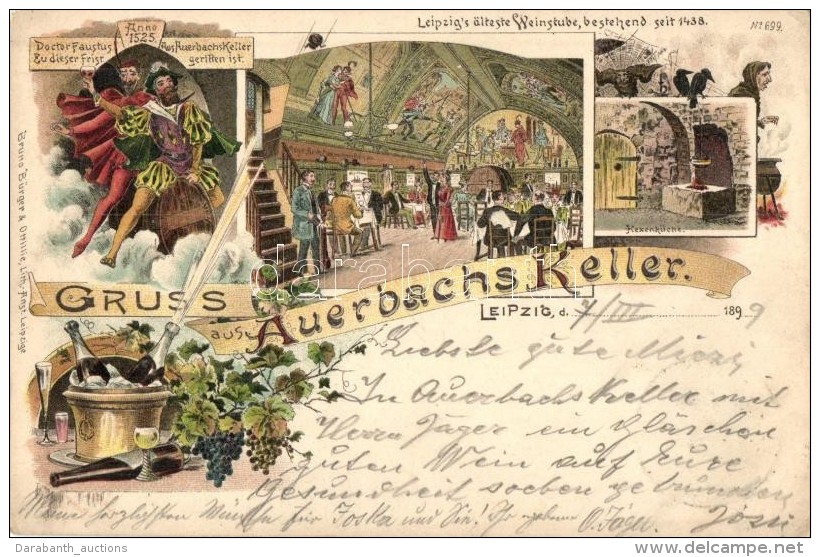 Leipzig's älteste Weinstube, bestehend seit 1438.
No 699.
Anno
1525.
Doctor Faustus
Zu dieser Frist
Aus Auerbachs Keller
geritten ist.
Hexenküche.
Bruno Bürger & Ottilie, Lith. Anst. Leipzig.
GRUSS
aus
Auerbachs Keller.
LEIPZIG, d. 1899
Liebste gute Miezi
In Auerbachs Keller mit
Herrn Jäger ein Gläschen
guten Wein auf Eure
Gesundheit soeben getrunken
Josu
Meine herzlichsten für Joska und Sie! Ihr O. Jäger.
darabanth
Darabanth_auctions
www.delcampe.net